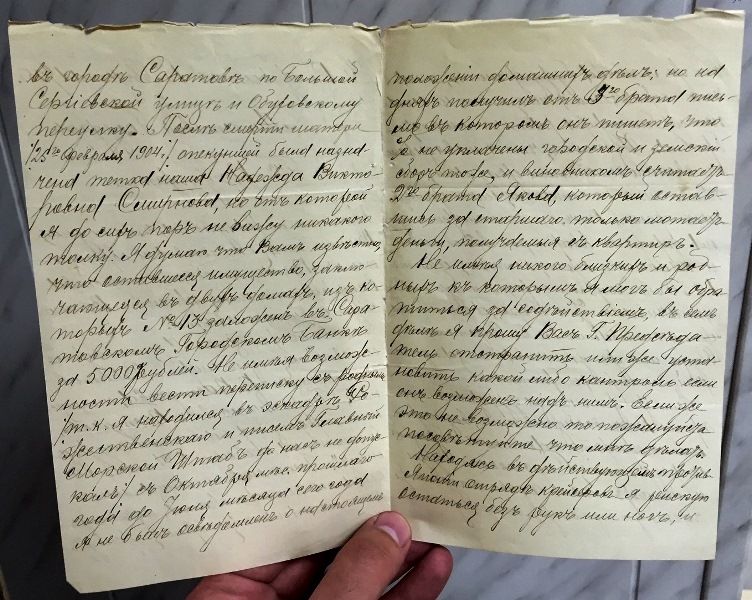 въ городѣ Саратовѣ по Большой
Сергіевской улицѣ и Обуховскому
переулку. Послѣ смерти матери
/25го февраля 1904./ опекуншей была назна
чена тетка наша Надежда Викто-
ровна Смирнова, но отъ которой
я до сихъ поръ не вижу никакого
толку. Я думаю что Вамъ извѣстно,
что оставшееся имущество, заклю-
чающееся въ двухъ домахъ, изъ ко-
торыхъ № 13 заложенъ въ Сара-
товскомъ Городскомъ Банкѣ
за 5000 рублей. Не имѣя возмож-
ности вести переписку съ родными
/т. к. я находился въ эскадрѣ Ро-
жественскаго и писемъ Главный
Морской Штабъ до насъ не допус-
калъ/ съ Октября мѣс. прошлаго
года до Іюля мѣсяца сего года
я не былъ освѣдомленъ о настоящемъ
положеніи домашнихъ дѣлъ; но на
дняхъ получилъ отъ 3го брата пись-
мо въ которомъ онъ пишетъ, что
не уплочены городской и земскій
сборъ тоже, и виновникомъ считаетъ
2го брата Якова, который остав-
шись за старшаго, только мотаетъ
деньги, получаемыя съ квартиръ.
Не имѣя никого близкихъ и род-
ныхъ къ которымъ я могъ бы обра
титься за содѣйствіемъ, въ семъ
дѣлѣ я прошу Васъ Г. Предсѣда-
тель отстранить или же уста
новить какой либо контроль если
онъ возможенъ надъ нимъ. Если же
это не возможно то пожалуйста
посовѣтуйте что мнѣ дѣлать.
Находясь въ дѣйствующемъ противъ
Японіи отрядѣ крейсеровъ я рискую
остаться безъ рукъ или ногъ, и